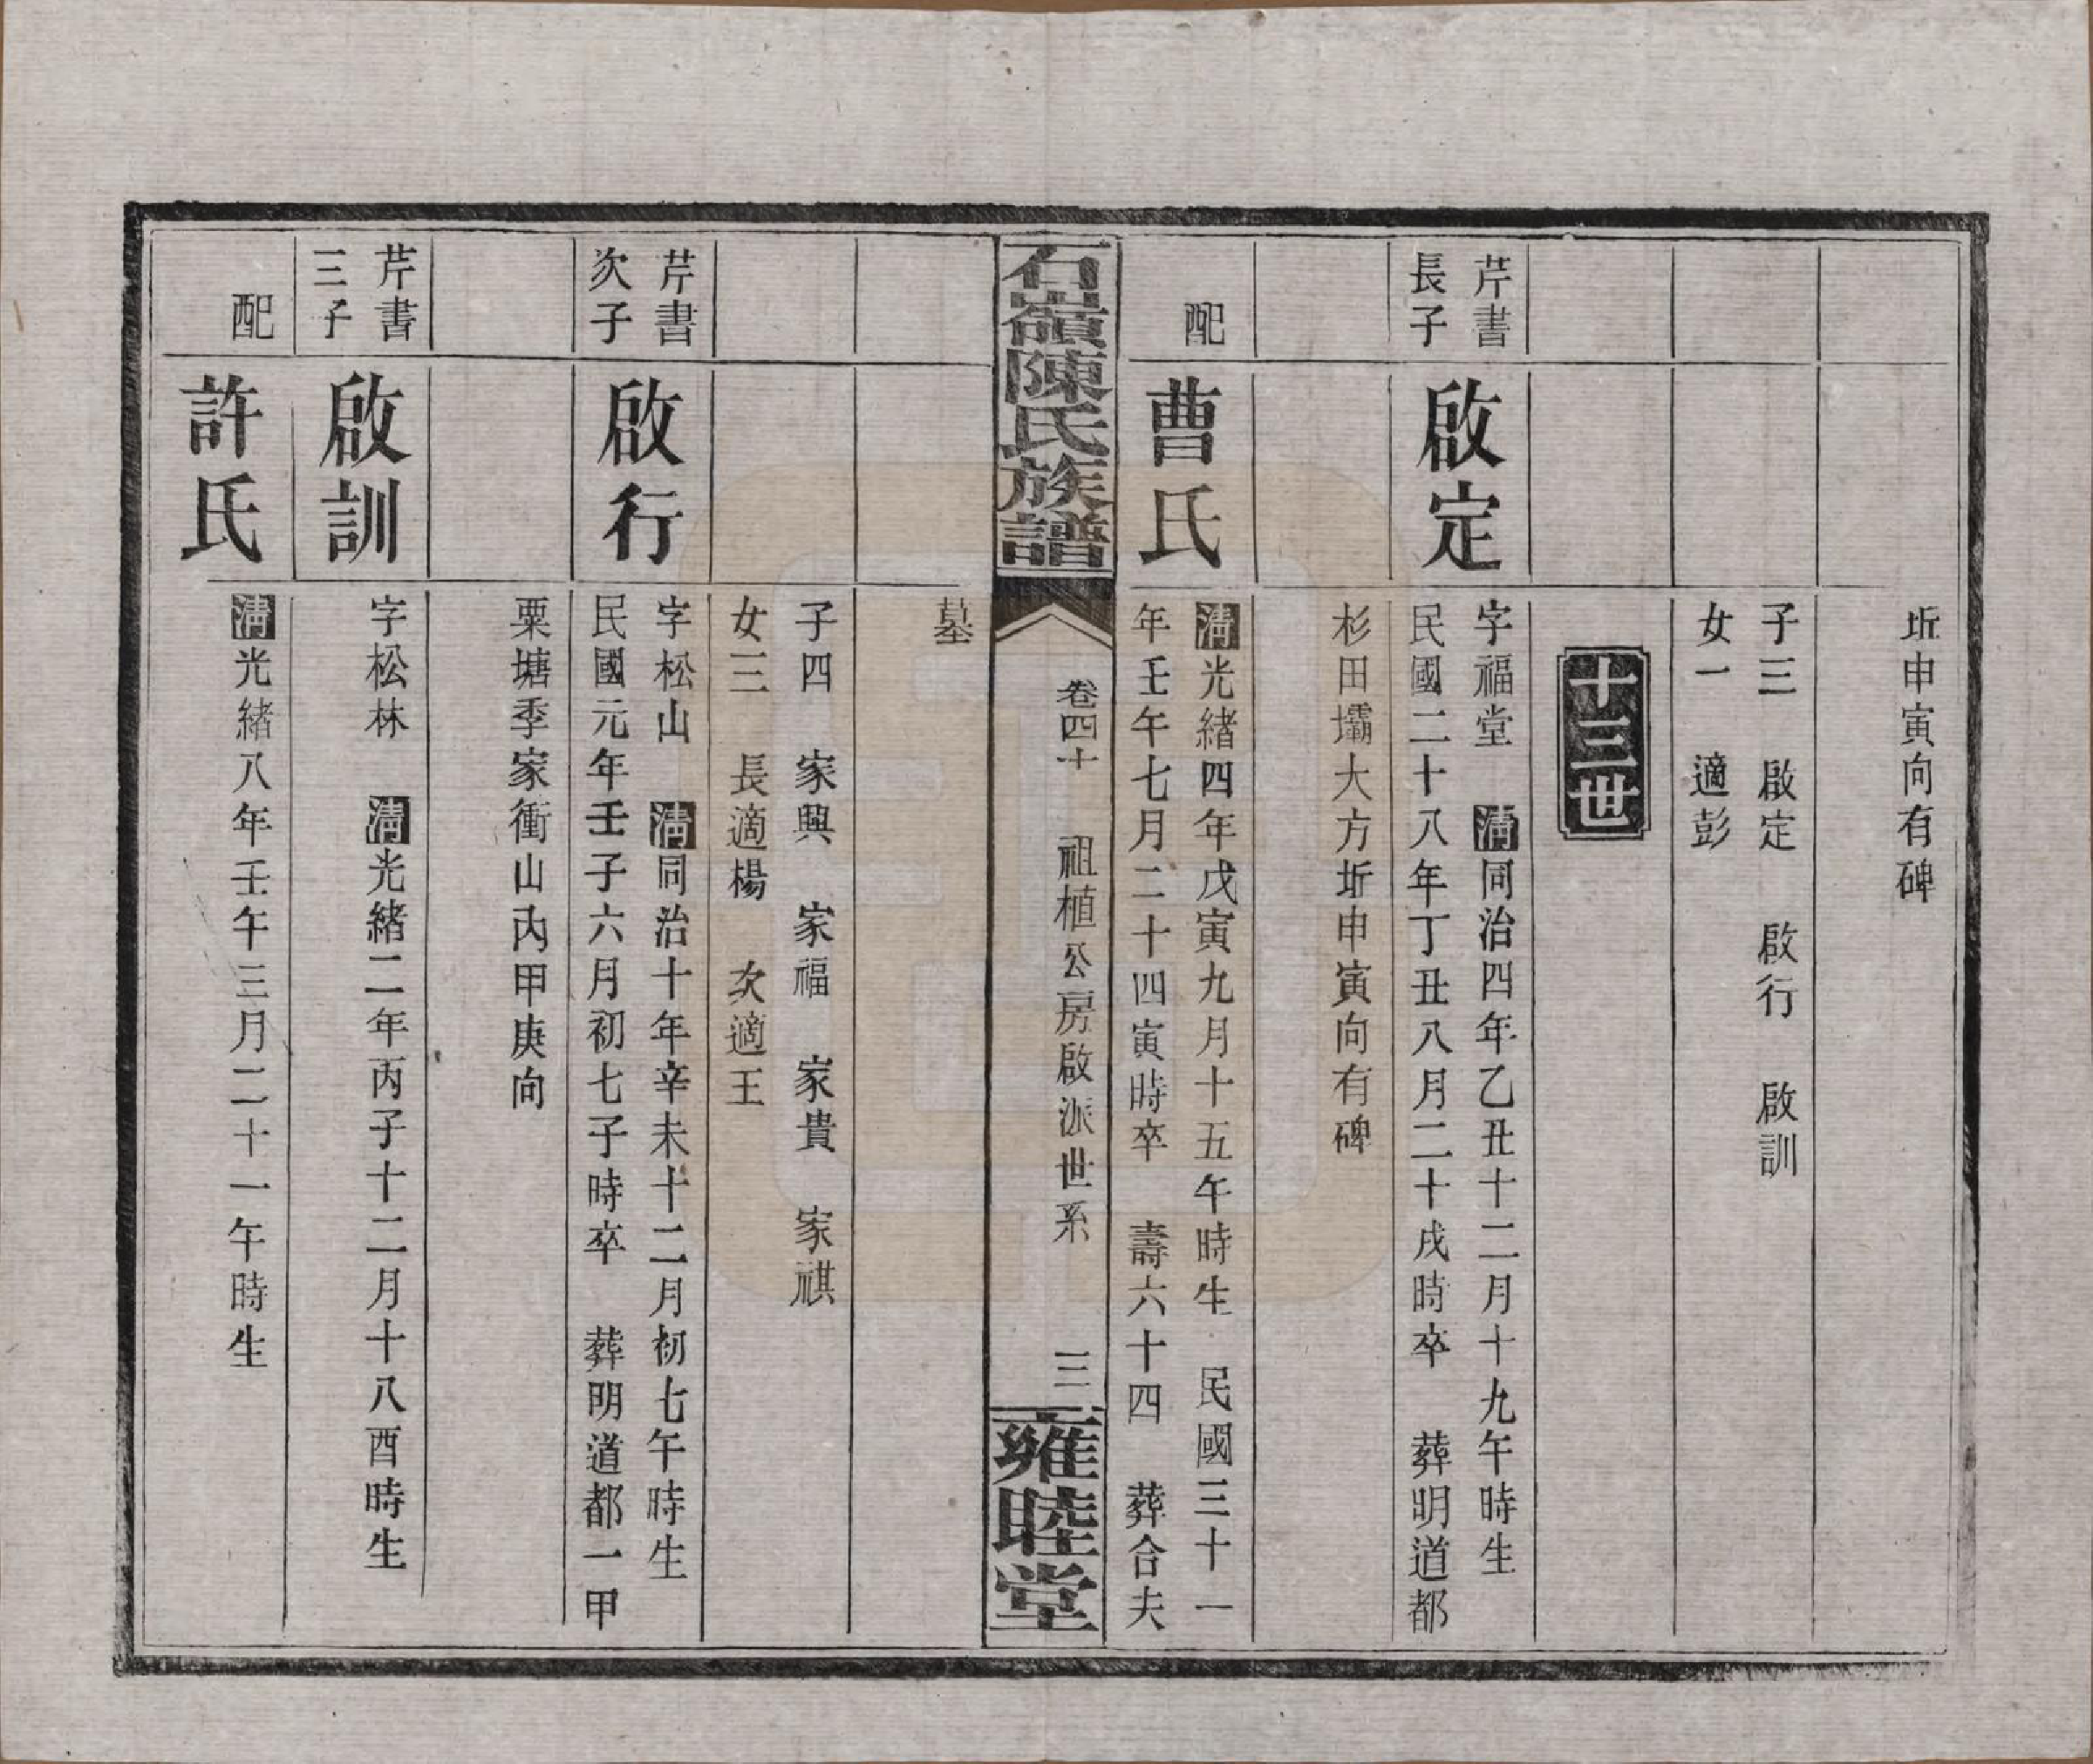 坵申寅向有碑
子三　啟定　啟行　啟訓
女一　適彭
十三世
芹書
長子
啟定
字福堂　清同治四年乙丑十二月十九午時生
民國二十八年丁丑八月二十戌時卒　葬明道都
杉田壩大方坵申寅向有碑
配
曹氏
清光緒四年戊寅九月十五午時生　民國三十一
年壬午七月二十四寅時卒　壽六十四　葬合夫
石嶺陳氏族譜
卷四十　祖植公房啟派世系　三
雍睦堂
墓
子四　家興　家福　家貴　家祺
女三　長適楊　次適王
芹書
次子
啟行
字松山　清同治十年辛未十二月初七午時生
民國元年壬子六月初七子時卒　葬明道都一甲
栗塘季家衝山丙甲庚向
芹書
三子
啟訓
字松林　清光緒二年丙子十二月十八酉時生
配
許氏
清光緒八年壬午三月二十一午時生